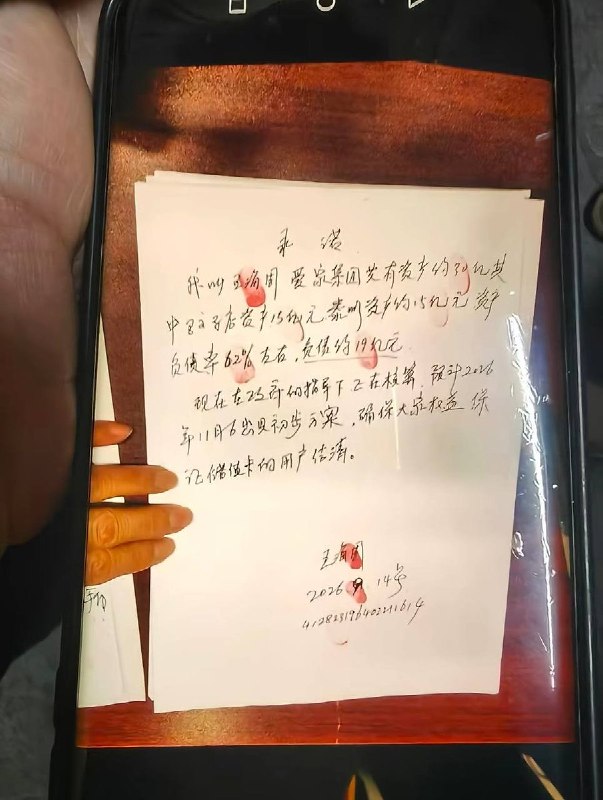 承诺
我叫王海周 爱家集团共有资产约30亿其
中驻马店资产15亿元 泰州资产约15亿元 资产
负债率62%左右，负债约19亿元
现在在政府的指导下正在核算，预计2026
年11月6出具初步方案，确保大家权益 保
证储值卡的用户结清。
王海周
2026 9 14号